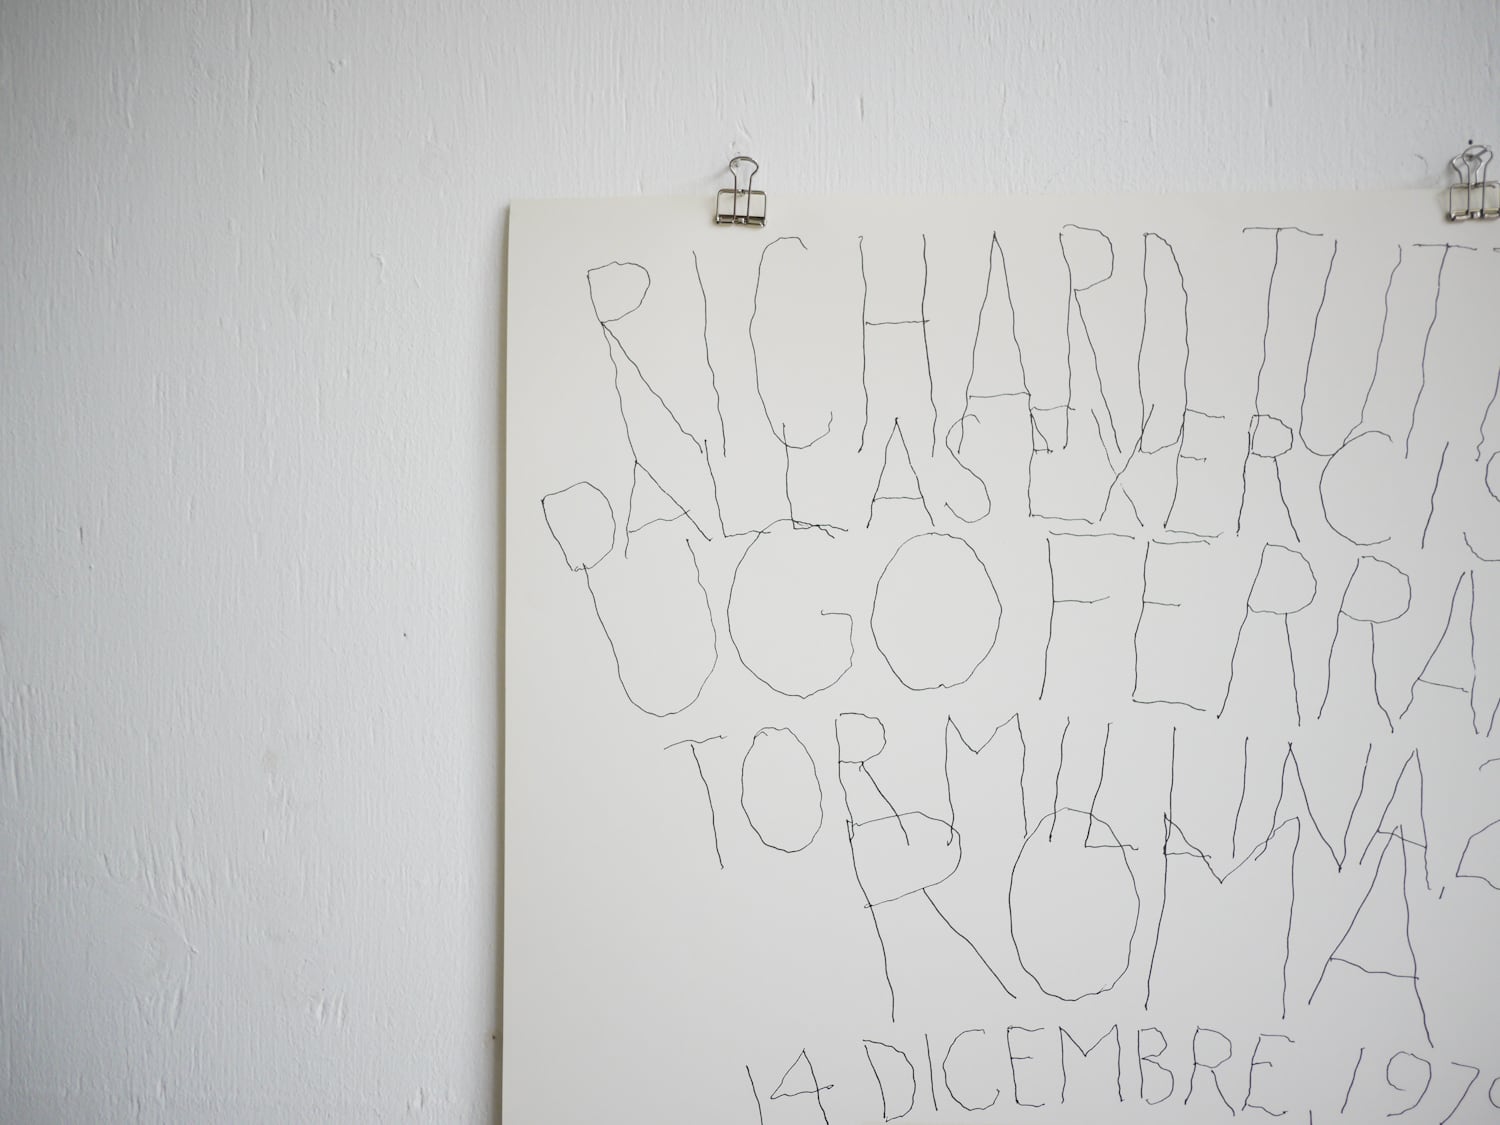 RICHARD TUT
DALLAS EXERCIS
UGO FERRA
TOR MILLINA, 2
ROMA
14 DICEMBRE, 197